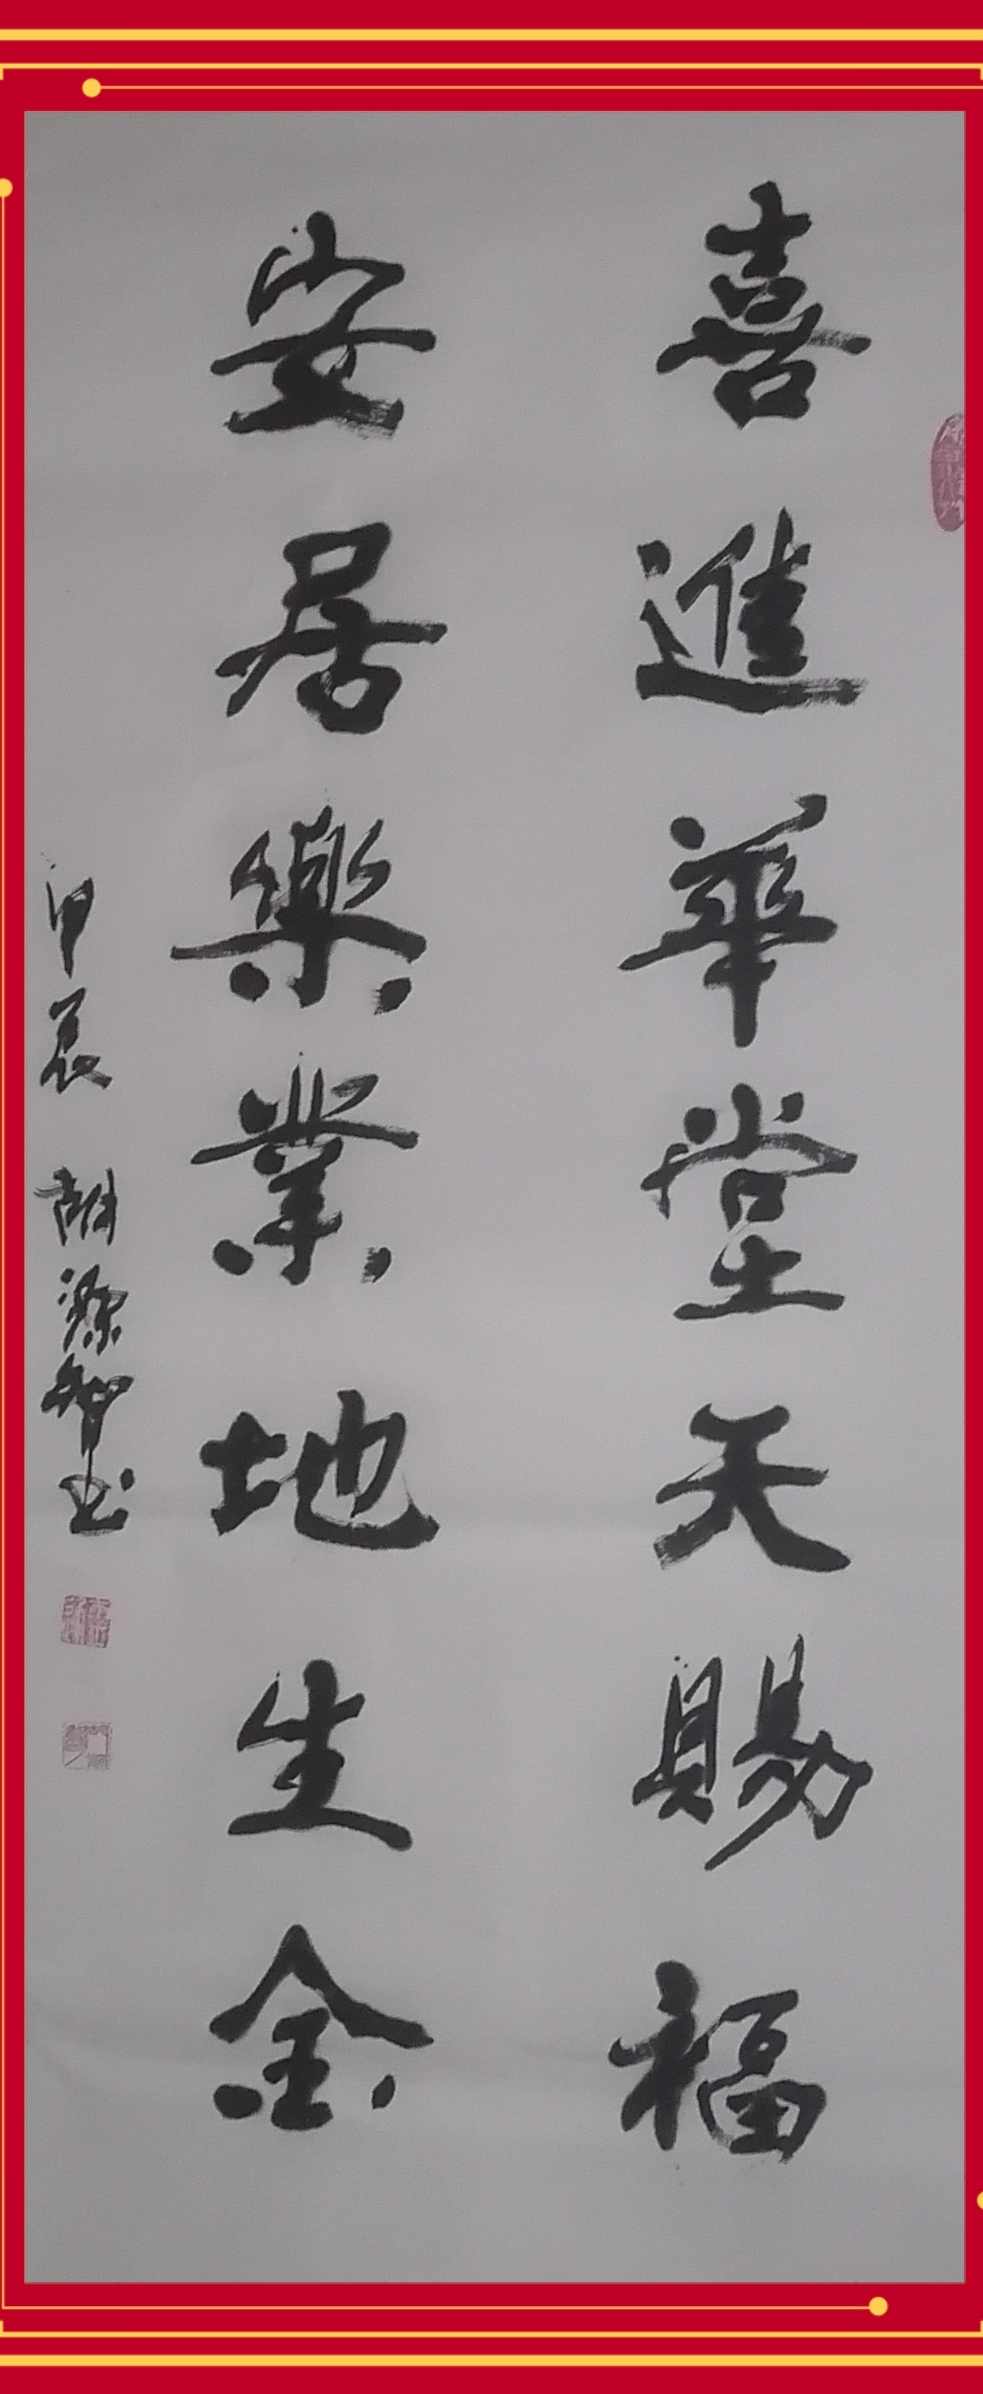 喜進華堂天賜福
安居樂業地生金
甲辰 胡源智书